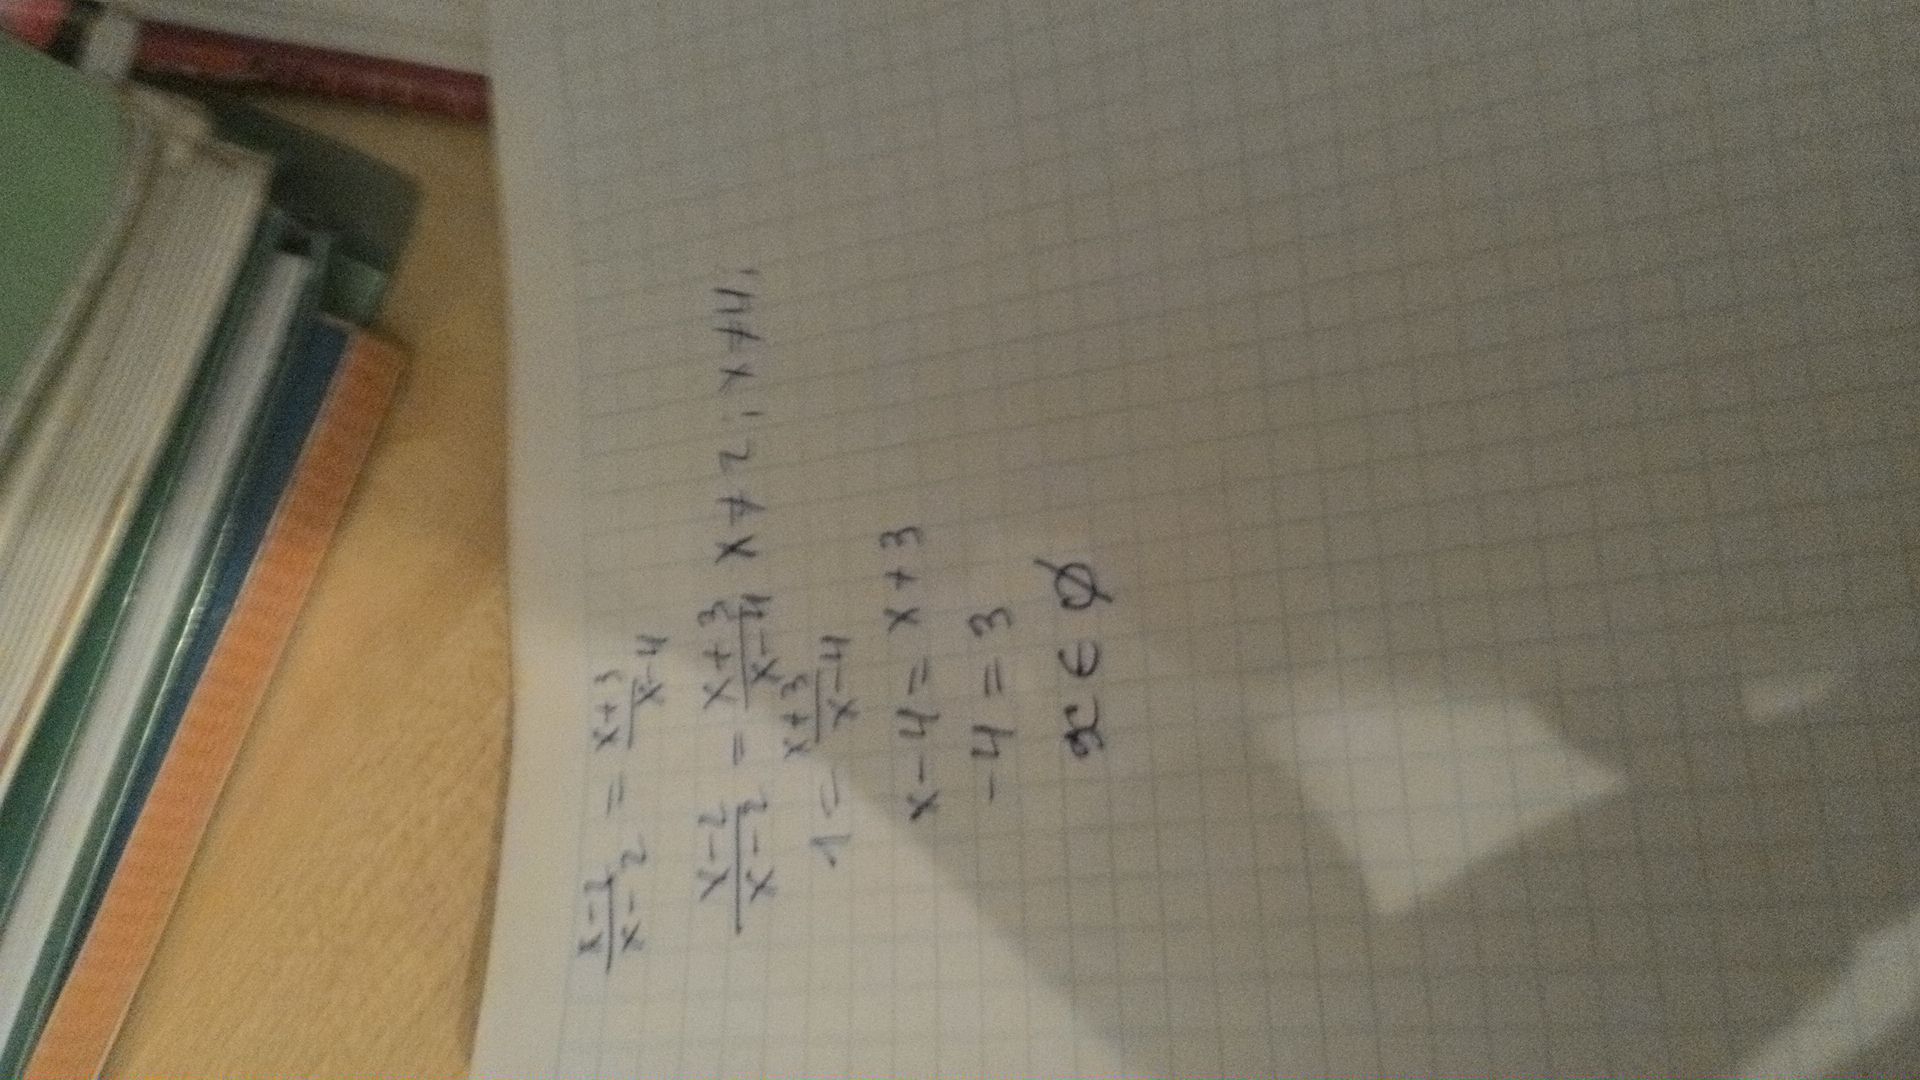 x-2/x-2 = x+3/x-4
x-2/x-2 = x+3/x-4 x≠2, x≠4,
1 = x+3/x-4
x-4 = x+3
-4 = 3
x∈∅